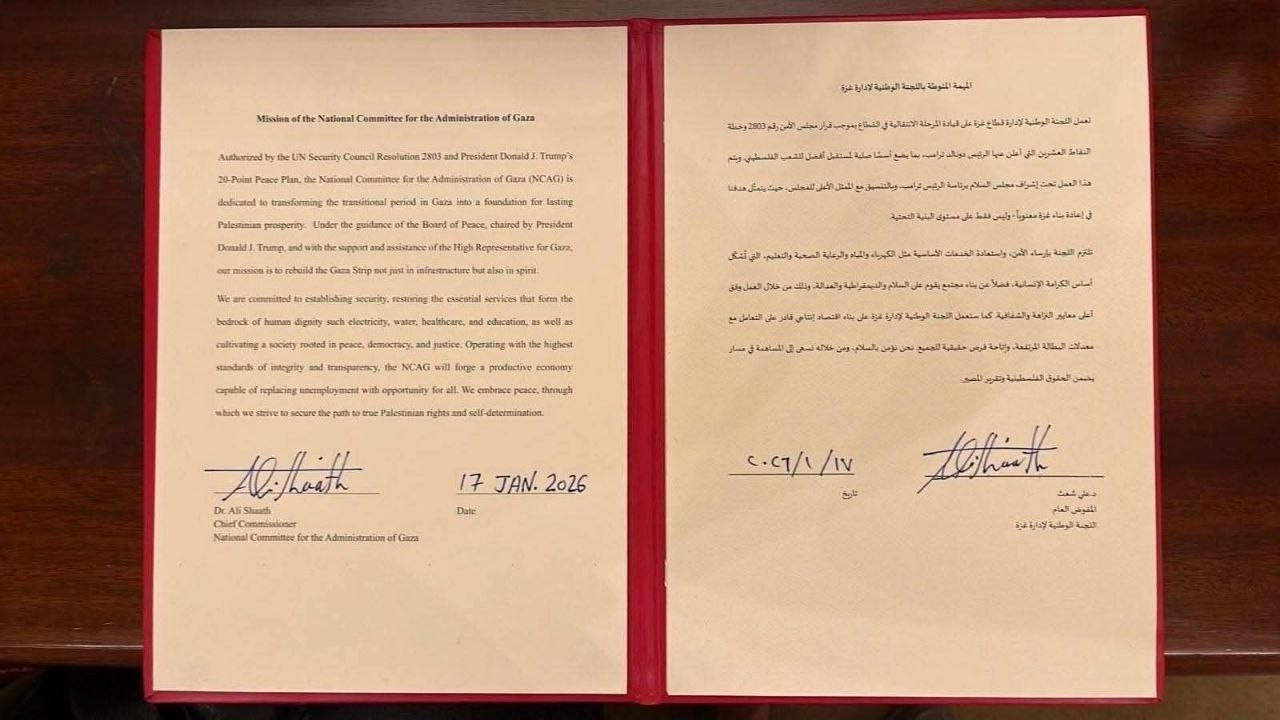 Mission of the National Committee for the Administration of Gaza
Authorized by the UN Security Council Resolution 2803 and President Donald J. Trump’s
20-Point Peace Plan, the National Committee for the Administration of Gaza (NCAG) is
dedicated to transforming the transitional period in Gaza into a foundation for lasting
Palestinian prosperity. Under the guidance of the Board of Peace, chaired by President
Donald J. Trump, and with the support and assistance of the High Representative for Gaza,
our mission is to rebuild the Gaza Strip not just in infrastructure but also in spirit.
We are committed to establishing security, restoring the essential services that form the
bedrock of human dignity such electricity, water, healthcare, and education, as well as
cultivating a society rooted in peace, democracy, and justice. Operating with the highest
standards of integrity and transparency, the NCAG will forge a productive economy
capable of replacing unemployment with opportunity for all. We embrace peace, through
which we strive to secure the path to true Palestinian rights and self-determination.
Ali Shaath
17 JAN. 2026
Dr. Ali Shaath
Date
Chief Commissioner
National Committee for the Administration of Gaza
المهمة المنوطة باللجنة الوطنية لإدارة غزة
تعمل اللجنة الوطنية لإدارة قطاع غزة على قيادة المرحلة الانتقالية في القطاع بموجب قرار مجلس الأمن رقم 2803 وخطة
النقاط العشرين التي أعلن عنها الرئيس دونالد ترامب، بما يضع أسسًا صلبة لمستقبل أفضل للشعب الفلسطيني. ويتم
هذا العمل تحت إشراف مجلس السلام برئاسة الرئيس ترامب، وبالتنسيق مع الممثل الأعلى للمجلس، حيث يتمثّل هدفنا
في إعادة بناء غزة معنوياً - وليس فقط على مستوى البنية التحتية.
تلتزم اللجنة بإرساء الأمن، واستعادة الخدمات الأساسية مثل الكهرباء والمياه والرعاية الصحية والتعليم، التي تُشكّل
أساس الكرامة الإنسانية، فضلاً عن بناء مجتمع يقوم على السلام والديمقراطية والعدالة، وذلك من خلال العمل وفق
أعلى معايير النزاهة والشفافية. كما ستعمل اللجنة الوطنية لإدارة غزة على بناء اقتصاد إنتاجي قادر على التعامل مع
معدلات البطالة المرتفعة، وإتاحة فرص حقيقية للجميع. نحن نؤمن بالسلام، ومن خلاله نسعى إلى المساهمة في مسار
يضمن الحقوق الفلسطينية وتقرير المصير.
Ali Shaath
٢٠٢٦/١/١٧
د.علي شعث
تاريخ
المفوض العام
اللجنة الوطنية لإدارة غزة